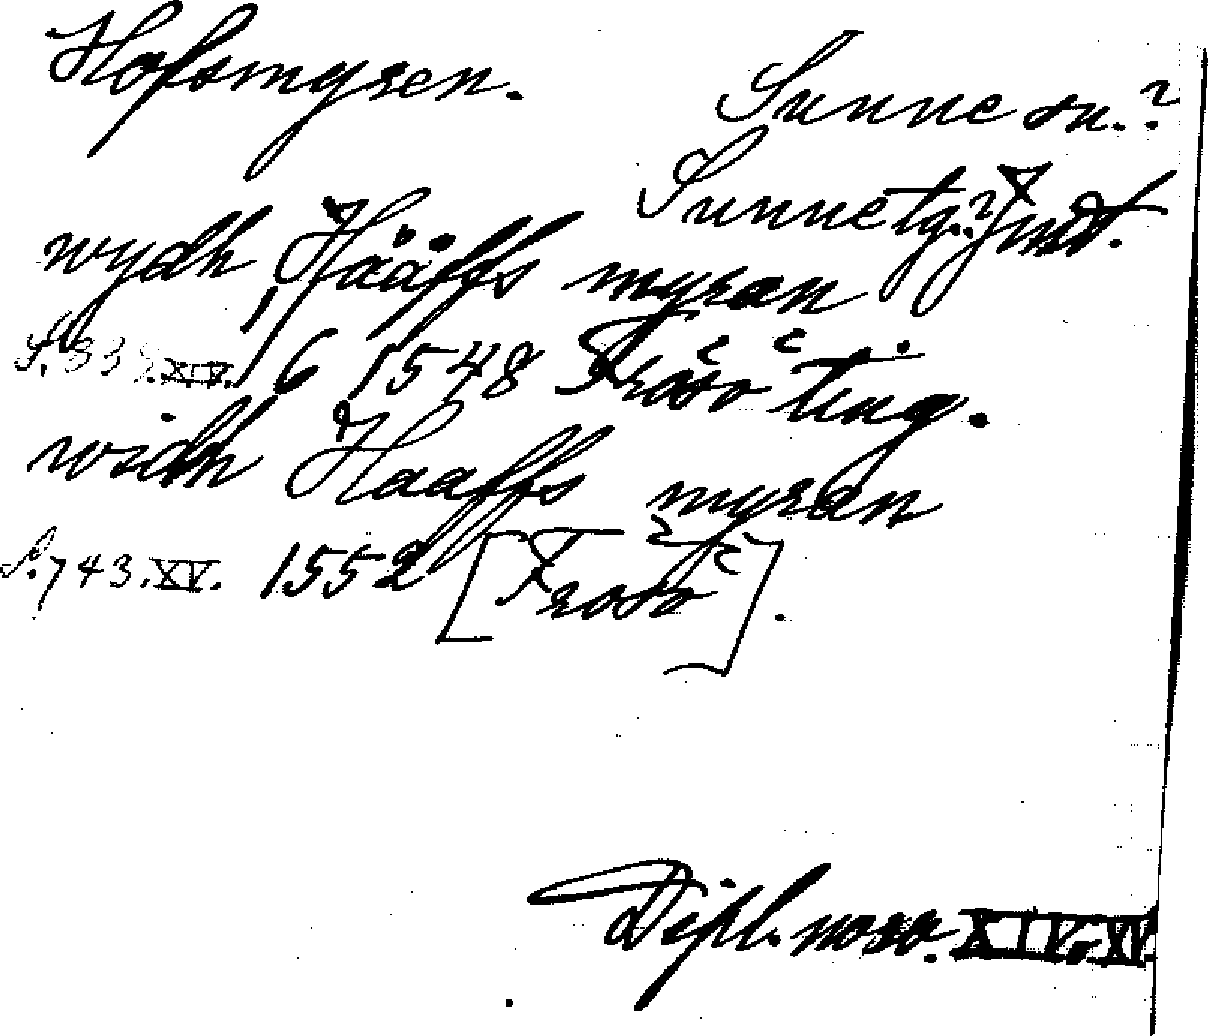 Hofsmyren.
Sunne sn.?
Sunne tg.? Jmtl.
wydh Hääffs myran
S. 338. XIV. 1/6 1548 Frösö ting.
widh Haaffs myran
S. 743. XV. 1552 [Frösö].
Dipl. norv. XIV. XV.